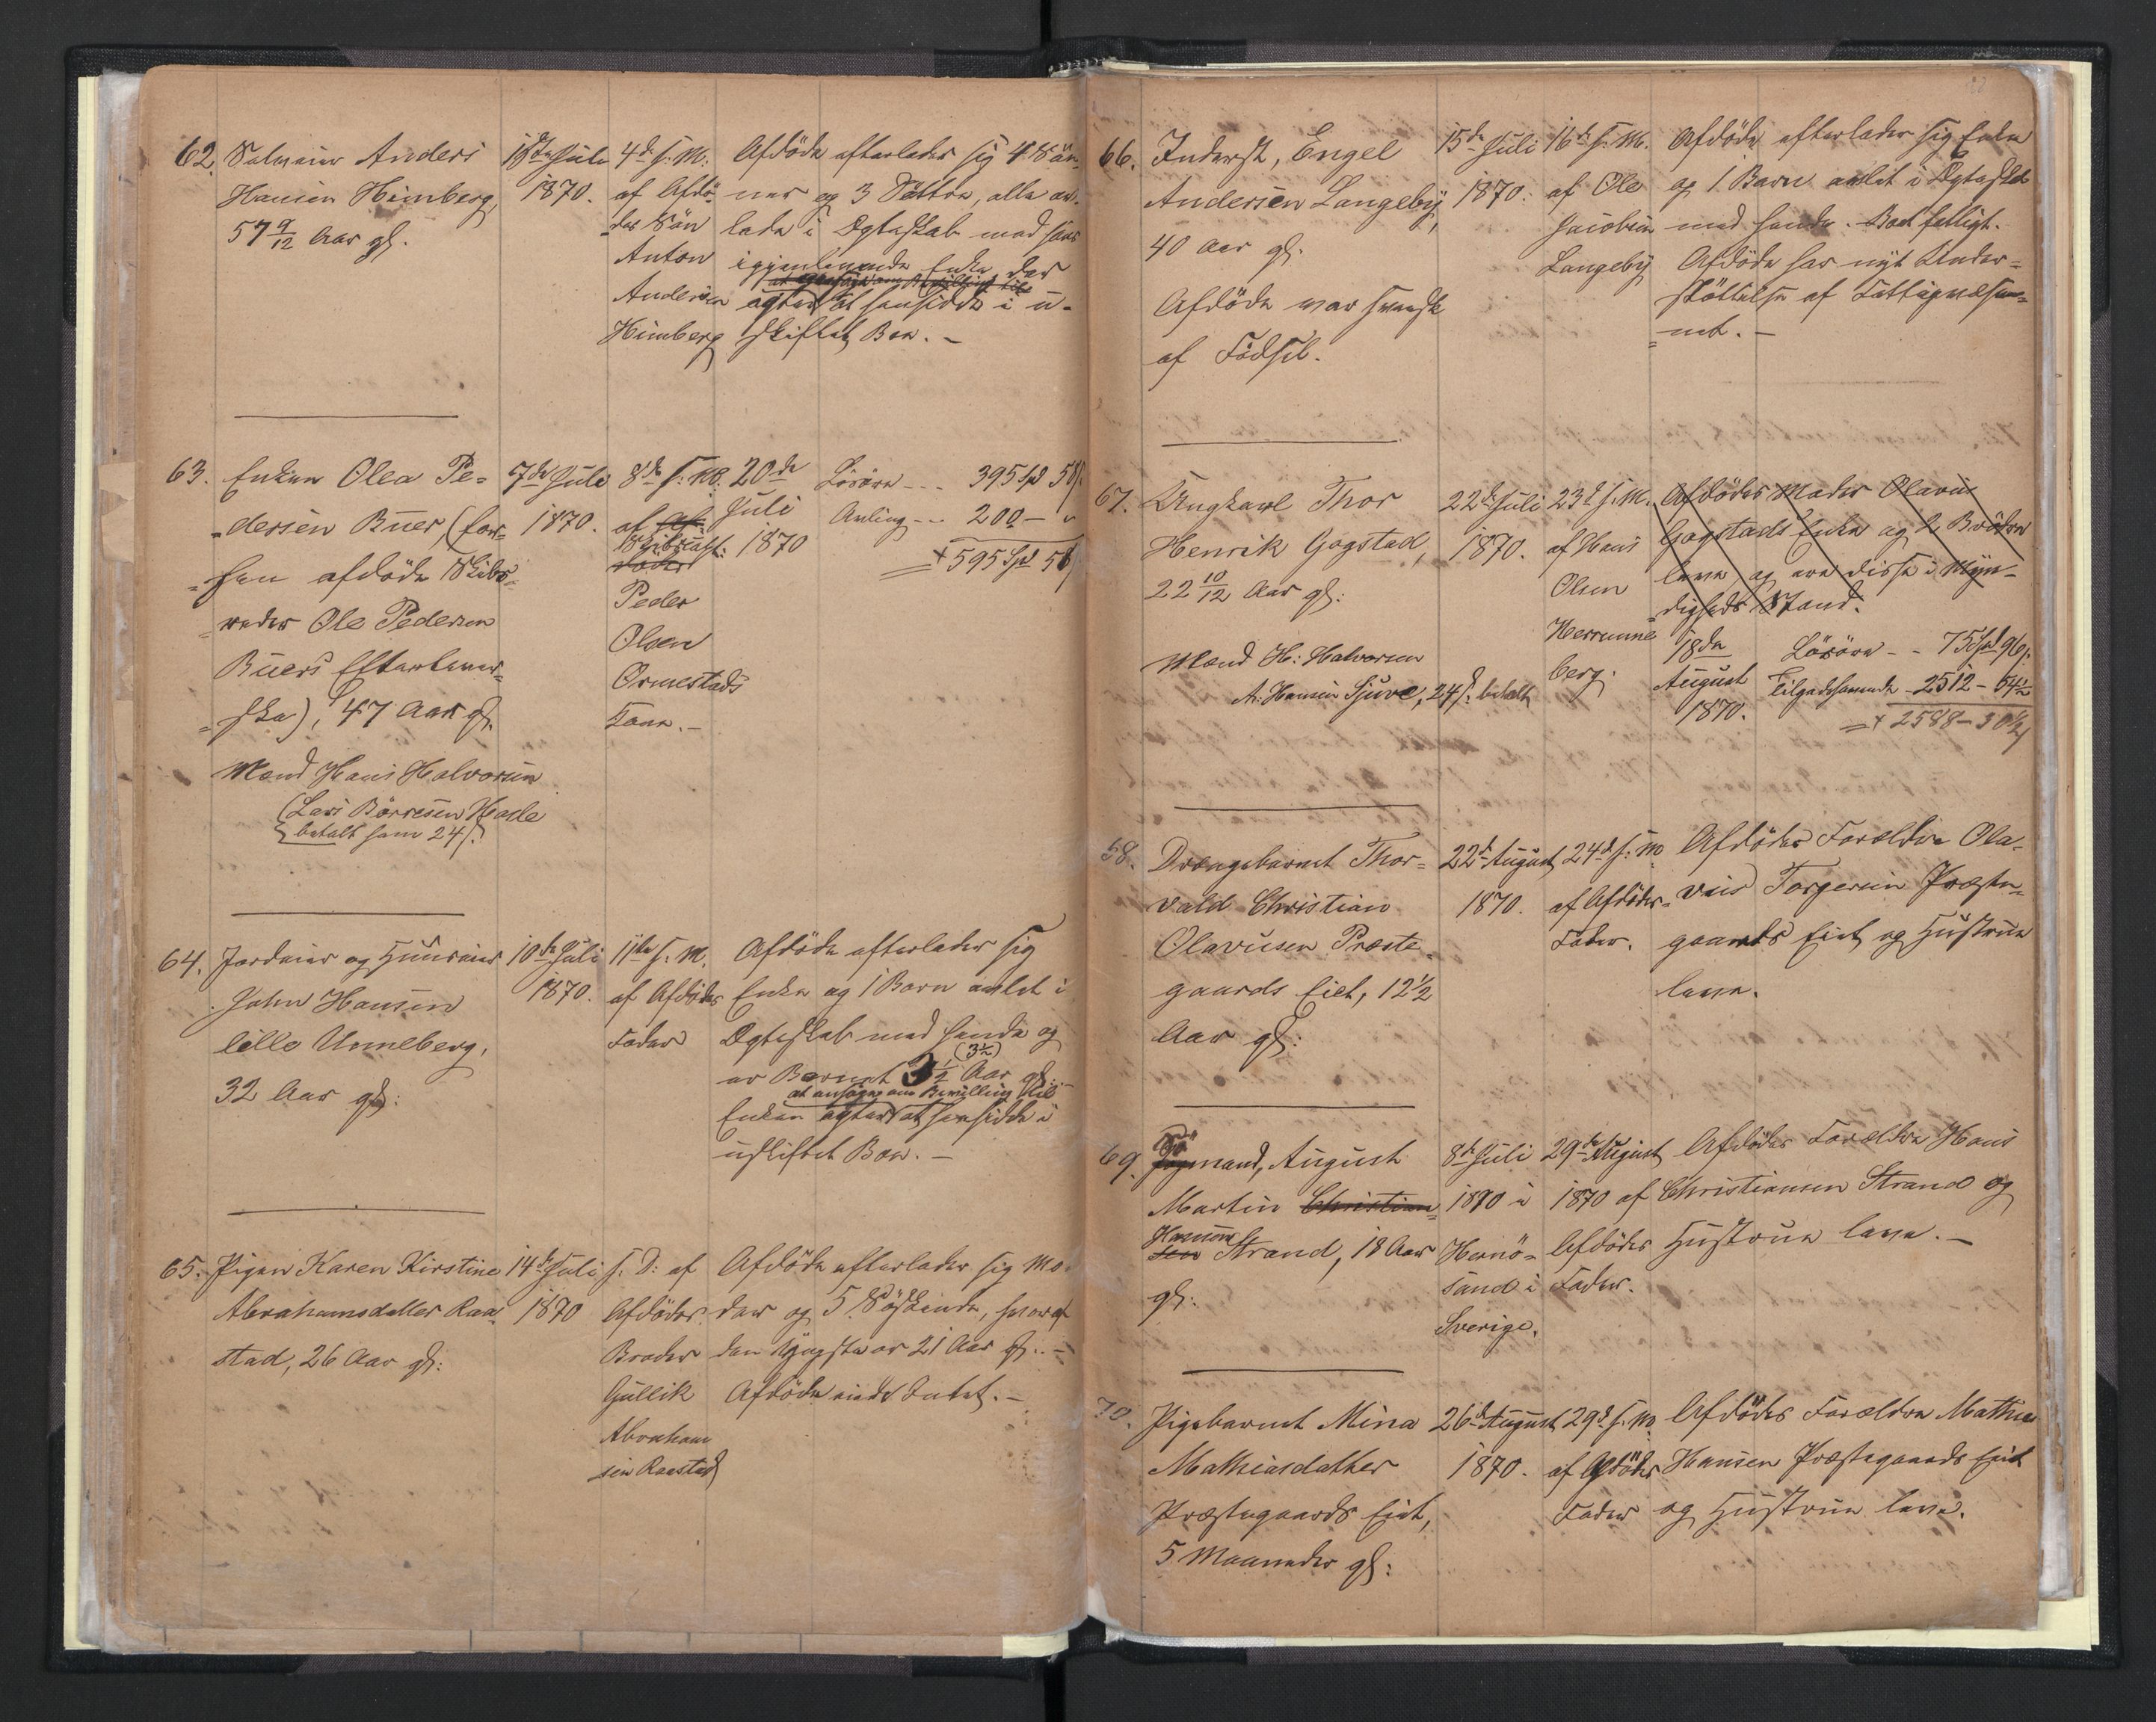 62. Anders
Hansen Himberg,
57 9/12 Aar gl.
Juli
1870.
4de s. M.
af Afdö-
des Sön
Anton
Andersen
Himberg
Afdöde efterlader sig 4 Sön-
ner og 3 Döttre, alle av-
lede i Ægteskab med hans
igjenlevende Enke, der
agter at hensidde i u-
skiftet Boe. –
63. Enken Olea Pe-
dersen Buer, (for-
hen afdöde Skibs-
reder Ole Pedersen
Buers Efterlever-
ske), 47 Aar gl.
Mænd Hans Halvorsen
(Lars Börresen Hasle
betalt ham 24 s.)
7de Juli
1870.
8de s. M.
af
Peder
Olsen
Ormestads
Kone. –
20de
Juli
1870
Lösöre -- 395 Spd 58 s.
Avling -- 200 – "
595 Spd 58 s.
64. Jordeier og
John Hansen
lille Unneberg,
32 Aar gl:
10de Juli
1870.
11te s. M.
af Afdödes
Fader
Afdöde efterlader sig
Enke og 1 Barn avlet i
Ægteskab med hende og
er Barnet 3 1/2 (3 1/2) Aar gl. –
at ansöge om Bevilling til
Enken agter at hensidde i
uskiftet Boe. –
65. Pigen Karen Kirstine
Abrahamsdatter Raa-
stad, 26 Aar gl:
14de Juli
1870
s. D: af
Afdödes
Broder
Gullik
Abraham-
sen Raastad
Afdöde efterlader sig Mo-
der og 5 Söskende, hvoraf
den yngste er 21 Aar gl. –
Afdöde eiede Intet. –
66. Inderst, Engel
Andersen Langeby,
40 Aar gl.
Afdöde var svensk
af Födsel.
15de Juli
1870.
16de s. M.
af Ole
Jacobsen
Langeby
Afdöde efterlader sig Enke
og 1 Barn avlet i Ægteskab
med hende. Boet fattigt.
Afdöde har nydt Under-
stöttelse af Fattigvæse-
net. –
67. Ungkarl Thor
Henrik Gogstad,
22 10/12 Aar gl:
Mænd H: Halvorsen
A. Hansen Sjuve, 24 s. betalt
22de Juli
1870.
23de s. M.
af Hans
Olsen
Herrumne
berg.
Afdödes Moder Olavus
Gogstads Enke og 2 Brödre
leve og ere disse i Myn-
digheds Stand.
18de
August
1870.
Lösöre -- 75 Spd 96 s.
Tilgodehavende - 2512 - 54 1/2
2588 – 30 1/2 s
68. Drengebarnet Thor-
vald Christian
Olavusen Præste-
gaards Eiet, 12 1/2
Aar gl:
22de August
1870.
24de s. M
af Afdödes
Fader.
Afdödes Forældre Ola-
vus Torgersen Præste-
gaards Eiet og Hustrue
leve.
69. Sömand, August
Martin Christian-
sen Hansen Strand, 18 Aar
gl:
8de Juli
1870 i
Hernö-
sand i
Sverige.
29de August
1870 af
Afdödes
Fader.
Afdödes Forældre Hans
Christiansen Strand og
Hustrue leve. –
70. Pigebarnet Mina
Mathiasdatter
Præstegaards Eiet,
5 Maaneder gl:
26de August
1870.
29de s. M
af Afdödes
Fader
Afdödes Forældre Mathias
Hansen Præstegaards Eiet
og Hustrue leve.